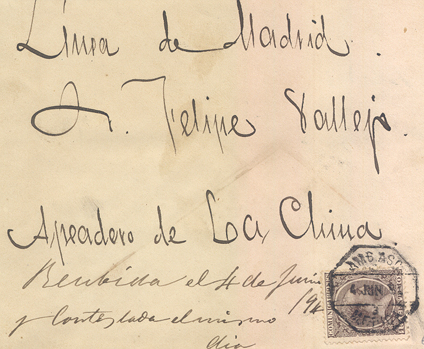 Línea de Madrid.
A. Felipe Vallejo.
Apeadero de La China.
Recibida el 4 de Junio
/94
y contestada el mismo
dia
AMB. ASC
4 JUN